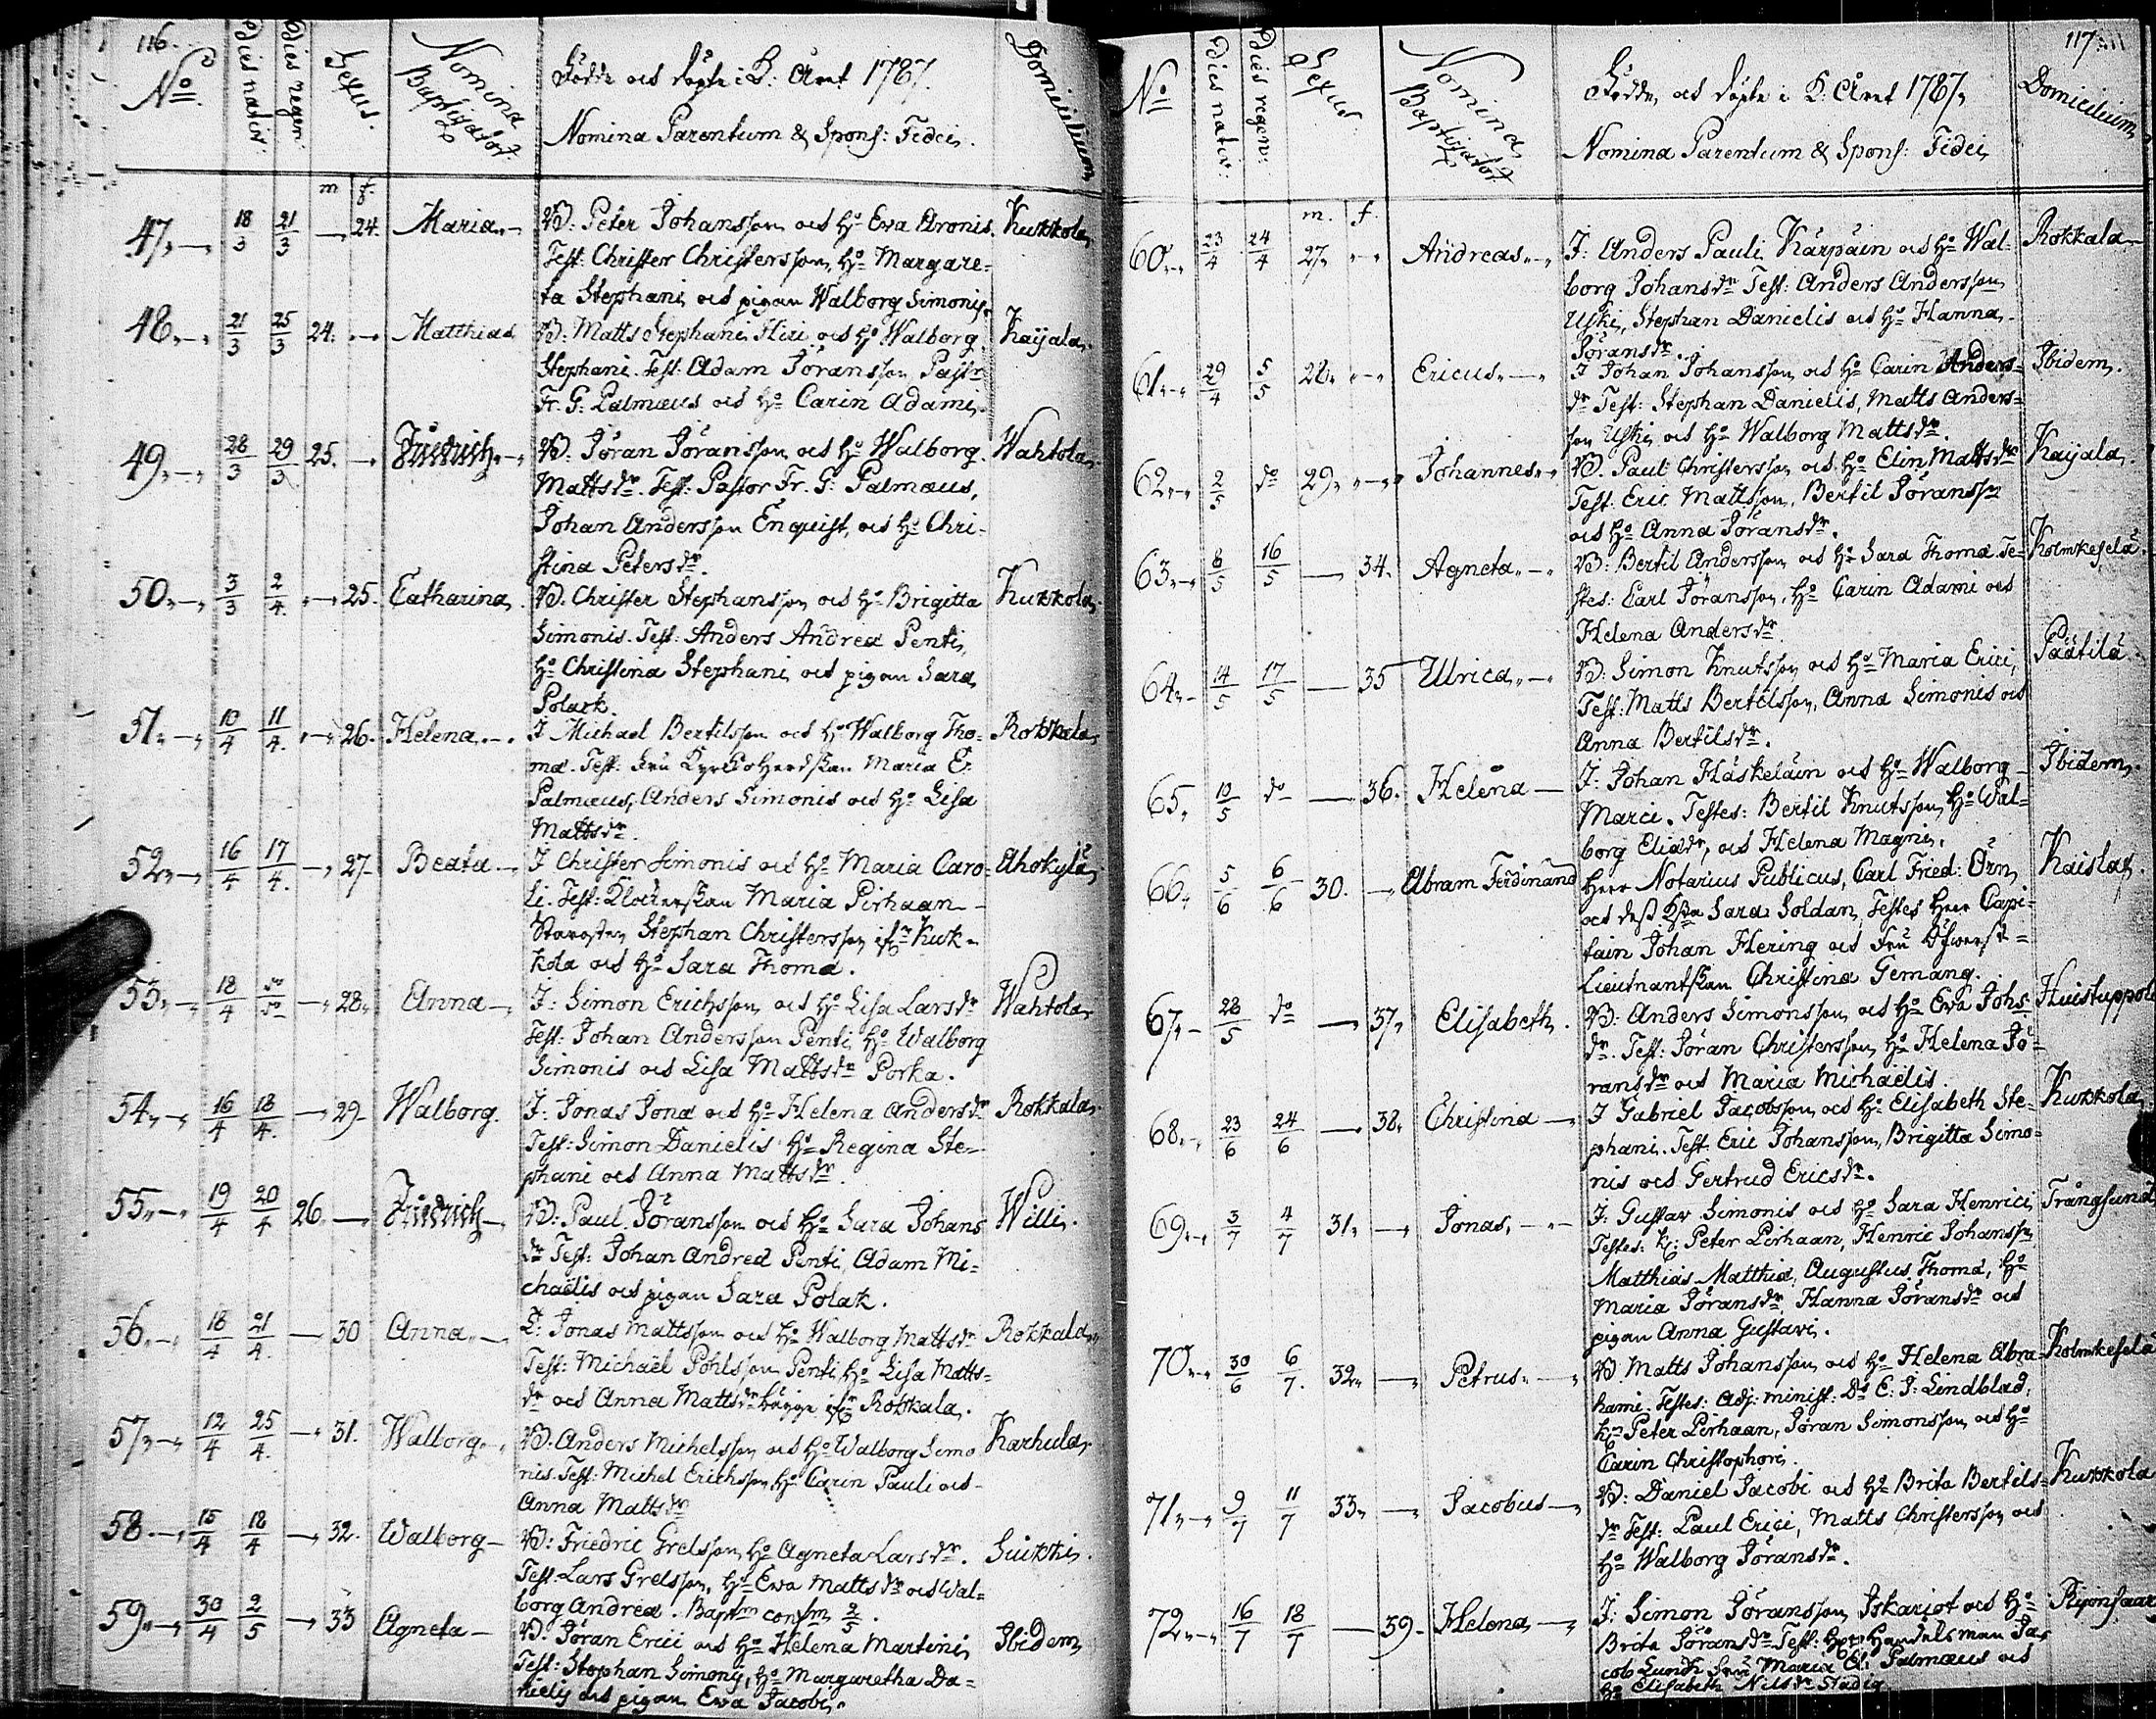 116.
No
dies nativ:
dies regen:
Sexus.
Nomina Baptizator:
Födde och döpte i B: Året 1787.
Nomina Parentum & Spons: Fidei.
Domicilium
m f.
47. 18/3 21/3 — 24. Maria. B: Peter Johansson och H: Eva Aronis. Kukkola
Test: Christer Christersson, H: Margare=
ta Stephani och pigan Walborg Simonis.
48. 21/3 25/3 24. — Matthias B: Matts Stephani Hiri och H: Walborg Kaijala.
Stephani. Test: Adam Jöransson Past:
Fr. G: Palmæus och H: Carin Adami.
49. 28/3 29/3 25. — Friedrich B: Jöran Jöransson och H: Walborg Wahtola.
Mattsdr. Test: Pastor Fr. G: Palmæus,
Johan Andersson Enquist, och H: Chri-
stina Petersdr.
50. 3/3 2/4. — 25. Catharina. B. Christer Stephansson och H: Brigitta Kukkola
Simonis. Test: Anders Andreæ Penti,
H: Christina Stephani och pigan Sara
Polack.
51. 10/4 11/4. — 26. Helena. I Michael Bertilsson och H: Walborg Tho= Rokkala
mæ. Test: Fru Kyrkoherdskan Maria E:
Palmæus, Anders Simonis och H: Lisa
Mattsdr.
52. 16/4 17/4. — 27. Beata I Christer Simonis och H: Maria Caro= Ahokylä
li. Test: Klockarskan Maria Pirhaan
Starosten Stephan Christersson ifr Kuk=
kola och H: Sara Thomæ.
53. 18/4 do — 28. Anna I: Simon Erichsson och H: Lisa Larsdr Wahtola
Test: Johan Andersson Penti H: Walborg
Simonis och Lisa Mattsdr Porka.
54. 16/4 18/4. — 29. Walborg. I: Jonas Jonæ och H: Helena Andersdr Rokkala
Test: Simon Danielis H: Regina Ste-
phani och Anna Mattsdr.
55. 19/4 20/4 26. — Friedrich B: Paul Jöransson och H: Sara Johans Willi.
dr Test: Johan Andreæ Penti, Adam Mi=
chaëlis och pigan Sara Polak.
56. 18/4 21/4. — 30 Anna I: Jonas Mattsson och H: Walborg Mattsdr Rokkala
Test: Michaël Pohlsson Penti, H: Lisa Matts=
dr och Anna Mattsdr bägge ifr Rokkala.
57. 12/4 25/4. — 31. Walborg B. Anders Michelsson och H: Walborg Simo Karhula
nis. Test: Michel Erichsson H: Carin Pauli och
Anna Mattsdr
58. 15/4 18/4 — 32. Walborg B: Friedric Grelsson, H: Agneta Larsdr. Suikki.
Test: Lars Grelsson, H: Eva Mattsdr och Wal=
borg Andreæ. Baptm confm 2/5.
59. 30/4 2/5 — 33 Agneta B. Jöran Erici och H: Helena Martini Ibidem
Test: Stephan Simonis, H: Margaretha Da=
nielis och pigan Eva Jacobi.
117.
No
dies nativ:
dies regen:
Sexus
Nomina Baptizator:
Födde och döpte i B: Året 1787
Nomina Parentum & Spons: Fidei
Domicilium
m. f.
60. 23/4 24/4 27. Andreas I: Anders Pauli Karpäin och H: Wal= Rokkala
borg Johansdr Test: Anders Andersson
Uski, Stephan Danielis och H: Hanna
Jöransdr.
61. 29/4 5/5 28. Ericus I Johan Johansson och H: Carin Anders= Ibidem.
dr Test: Stephan Danielis, Matts Anders=
son Uski och H: Walborg Mattsdr.
62. 2/5 do 29. Johannes B. Paul Christersson och H: Elin Mattsdr Kaijala
Test: Eric Mattsson, Bertil Jöransson
och H: Anna Jöransdr.
63. 8/5 16/5 — 34. Agneta B: Bertil Andersson och H: Sara Thomæ Te= Kolmikeselä
stes: Carl Jöransson, H: Carin Adami och
Helena Andersdr.
64. 14/5 17/5 — 35 Ulrica B: Simon Knutsson och H: Maria Erici, Päätilä
Test: Matts Bertilsson, Anna Simonis och
Anna Bertilsdr.
65. 10/5 do — 36. Helena I: Johan Häskeläin och H: Walborg Ibidem
Marci. Testes: Bertil Knutsson, H: Wal=
borg Eliædr, och Helena Magni.
66. 5/6 6/6 30. — Abram Ferdinand Herr Notarius Publicus, Carl Fried: Örn, Kaislax
och dess Sara Soldan, Testes Herr Capi=
tain Johan Hering och Fru Öfverst=
Lieutnantskan Christina Gemang.
67. 28/5 do — 37. Elisabeth B: Anders Simonsson och H: Eva Johs Huistuppola
dr. Test: Jöran Christersson, H: Helena Jö=
ransdr och Maria Michaëlis.
68. 23/6 24/6 — 38. Christina I Gabriel Jacobsson och H: Elisabeth Ste= Kukkola
phani. Test. Eric Johansson, Brigitta Simo=
nis och Gertrud Ericsdr.
69. 3/7 4/7 31. — Jonas I: Gustav Simonis och H: Sara Henrici Trångsund
Testes: Peter Pirhaan, Henric Johansson
Matthias Matthiæ, Augustus Thomæ, H:
Maria Jöransdr, Hanna Jöransdr och
pigan Anna Gustavi.
70. 30/6 6/7. 32. — Petrus B. Matts Johansson och H: Helena Abra= Kolmikeselä
hami. Testes: Adj. minist: Ds E: J: Lindblad,
Peter Pirhaan, Jöran Simonsson och H:
Carin Christophori.
71. 9/7 11/7 33. — Jacobus B: Daniel Jacobi och H: Brita Bertils= Kukkola
dr Test: Paul Erici, Matts Christersson och
H: Walborg Jöransdr.
72. 16/7 18/7 — 39. Helena I: Simon Jöransson Iskariot och H:
Brita Jöransdr Test: Handelsman Ja=
cob Lundh Fru Maria E: Palmæus och
H: Elisabeth Nilsdr Stadig